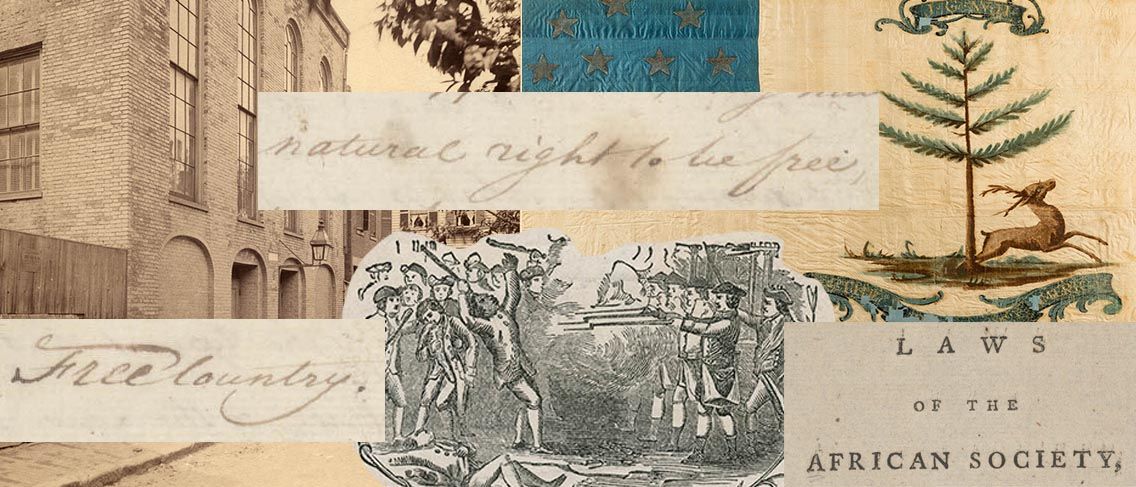 natural right to be free,
Free Country.
LAWS
OF THE
AFRICAN SOCIETY,